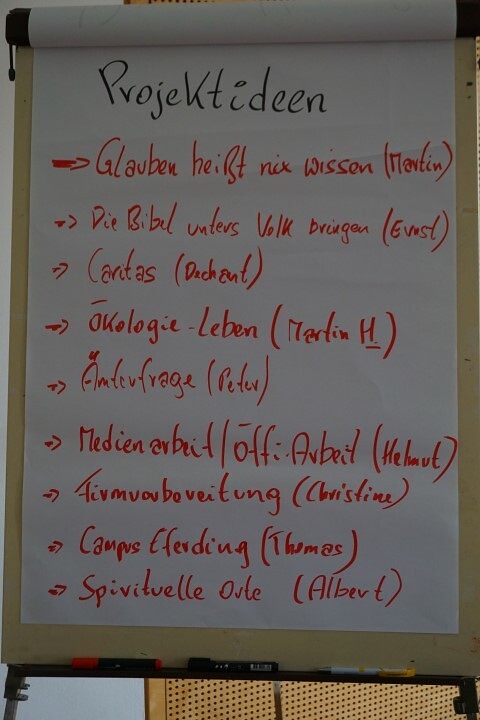 Projektideen
=> Glauben heißt nix wissen (Martin)
=> Die Bibel unters Volk bringen (Ernst)
=> Caritas (Dechant)
=> Ökologie-Leben (Martin H.)
=> Ämterfrage (Peter)
=> Medienarbeit/Öffi-Arbeit (Helmut)
=> Firmvorbereitung (Christine)
=> Campus Eferding (Thomas)
=> Spirituelle Orte (Albert)